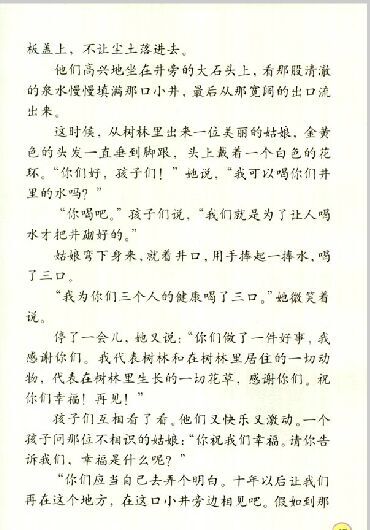 板盖上，不让尘土落进去。
他们高兴地坐在井旁的大石头上，看那股清澈
的泉水慢慢填满那口小井，最后从那宽阔的出口流
出来。
这时候，从树林里出来一位美丽的姑娘，金黄
色的头发一直垂到脚跟，头上戴着一个白色的花
环。“你们好，孩子们！”她说，“我可以喝你们井
里的水吗？”
“你喝吧。”孩子们说，“我们就是为了让人喝
水才把井砌好的。”
姑娘弯下身来，就着井口，用手捧起一捧水，喝
了三口。
“我为你们三个人的健康喝了三口。”她微笑着
说。
停了一会儿，她又说：“你们做了一件好事，我
感谢你们。我代表树林和在树林里居住的一切动
物，代表在树林里生长的一切花草，感谢你们。祝
你们幸福！再见！”
孩子们互相看了看。他们又快乐又激动。一个
孩子问那位不相识的姑娘：“你祝我们幸福。请你告
诉我们，幸福是什么呢？”
“你们应当自己去弄个明白。十年以后让我们
再在这个地方，在这口小井旁边相见吧。假如到那